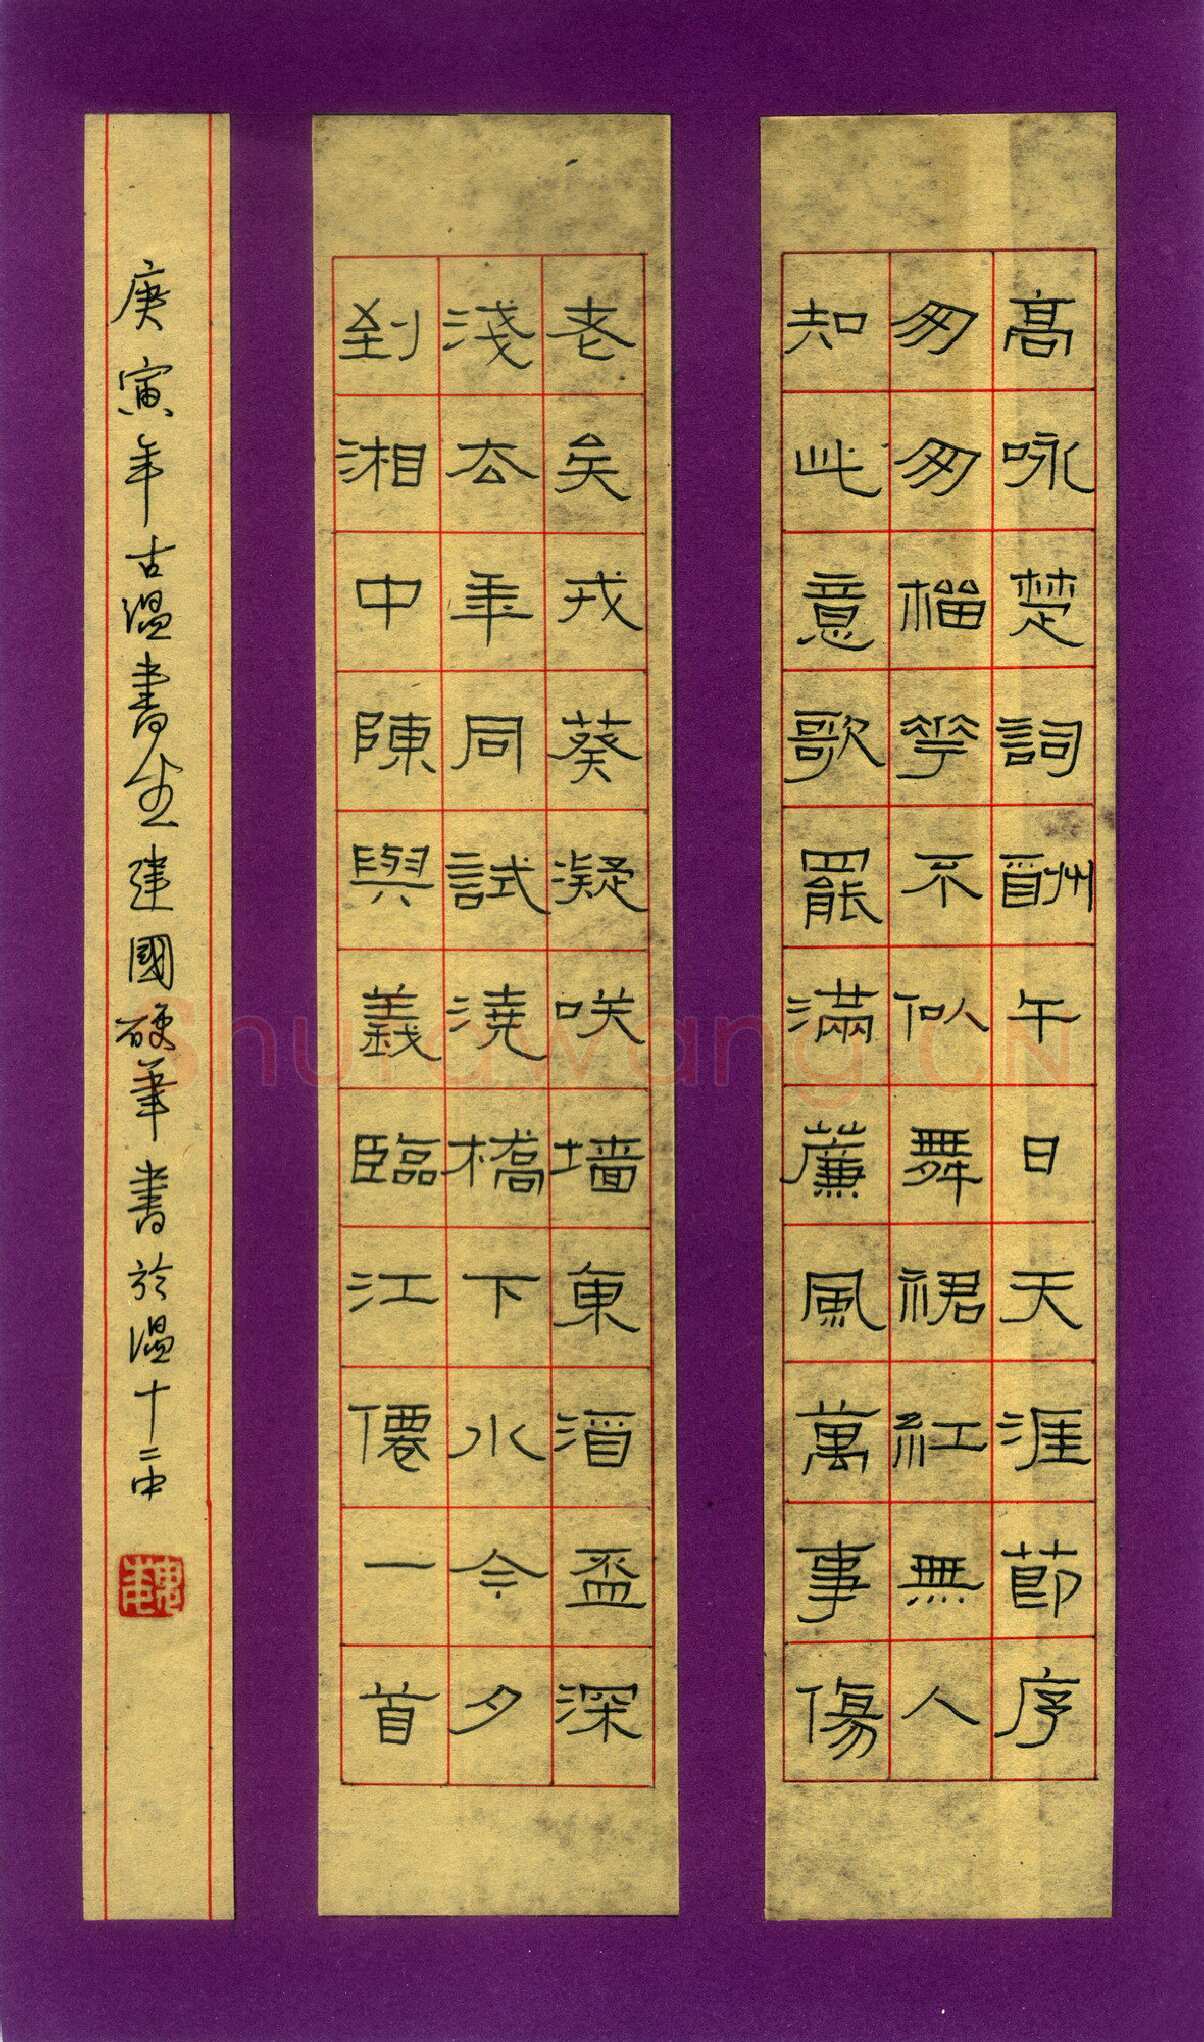 高咏楚詞酬午日天涯節序
匆匆榴花不似舞裙紅無人
知此意歌罷滿簾風萬事傷
老矣戎葵凝咲墻東酒盃深
淺去年同試澆橋下水今夕
到湘中陳與義臨江僊一首
庚寅年古溫書生建國硬筆書於溫十二中
Shufawang.CN